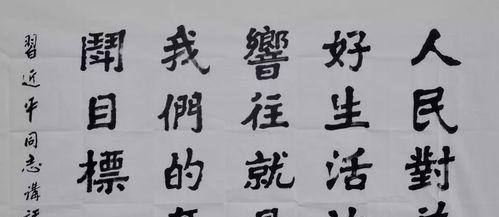 人民對
好生活
響往就
我們的
鬪目標
習近平同志講